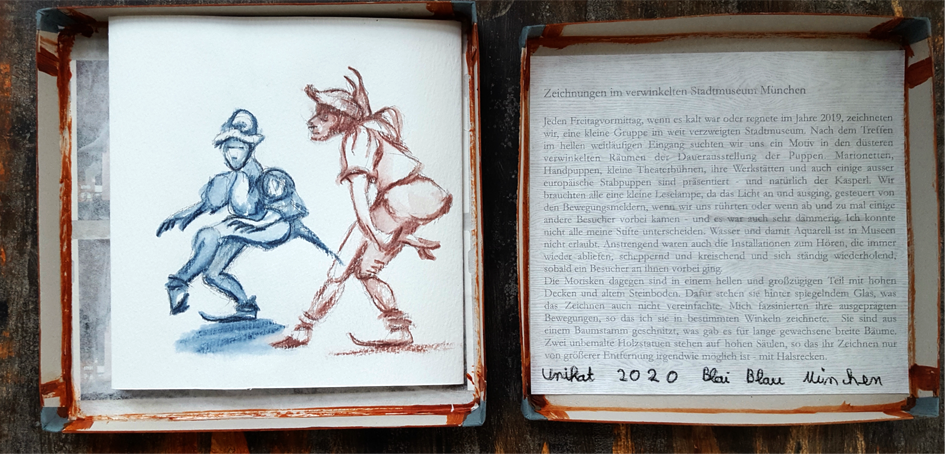 Zeichnungen im verwinkelten Stadtmuseum München
Jeden Freitagvormittag, wenn es kalt war oder regnete im Jahre 2019, zeichneten
wir, eine kleine Gruppe im weit verzweigten Stadtmuseum. Nach dem Treffen
im hellen weitläufigen Eingang suchten wir uns ein Motiv in den düsteren
verwinkelten Räumen der Dauerausstellung der Puppen. Marionetten,
Handpuppen, kleine Theaterbühnen, ihre Werkstätten und auch einige ausser
europäische Stabpuppen sind präsentiert - und natürlich der Kasperl. Wir
brauchten alle eine kleine Leselampe, da das Licht an und ausging, gesteuert von
den Bewegungsmeldern, wenn wir uns rührten oder wenn ab und zu mal einige
andere Besucher vorbei kamen - und es war auch sehr dämmrig. Ich konnte
nicht alle meine Stifte unterscheiden. Wasser und damit Aquarell ist in Museen
nicht erlaubt. Anstrengend waren auch die Installationen zum Hören, die immer
wieder abliefen, scheppernd und kreischend und sich ständig wiederholend,
sobald ein Besucher an ihnen vorbei ging.
Die Morisken dagegen sind in einem hellen und großzügigen Teil mit hohen
Decken und altem Steinboden. Dafür stehen sie hinter spiegelndem Glas, was
das Zeichnen auch nicht vereinfachte. Mich faszinierten ihre ausgeprägten
Bewegungen, so das ich sie in bestimmten Winkeln zeichnete. Sie sind aus
einem Baumstamm geschnitzt, was gab es für lange gewachsene breite Bäume.
Zwei unbemalte Holzstatuen stehen auf hohen Säulen, so das ihr Zeichnen nur
von größerer Entfernung irgendwie möglich ist - mit Halsrecken.
Unikat 2020 Blai Blau München